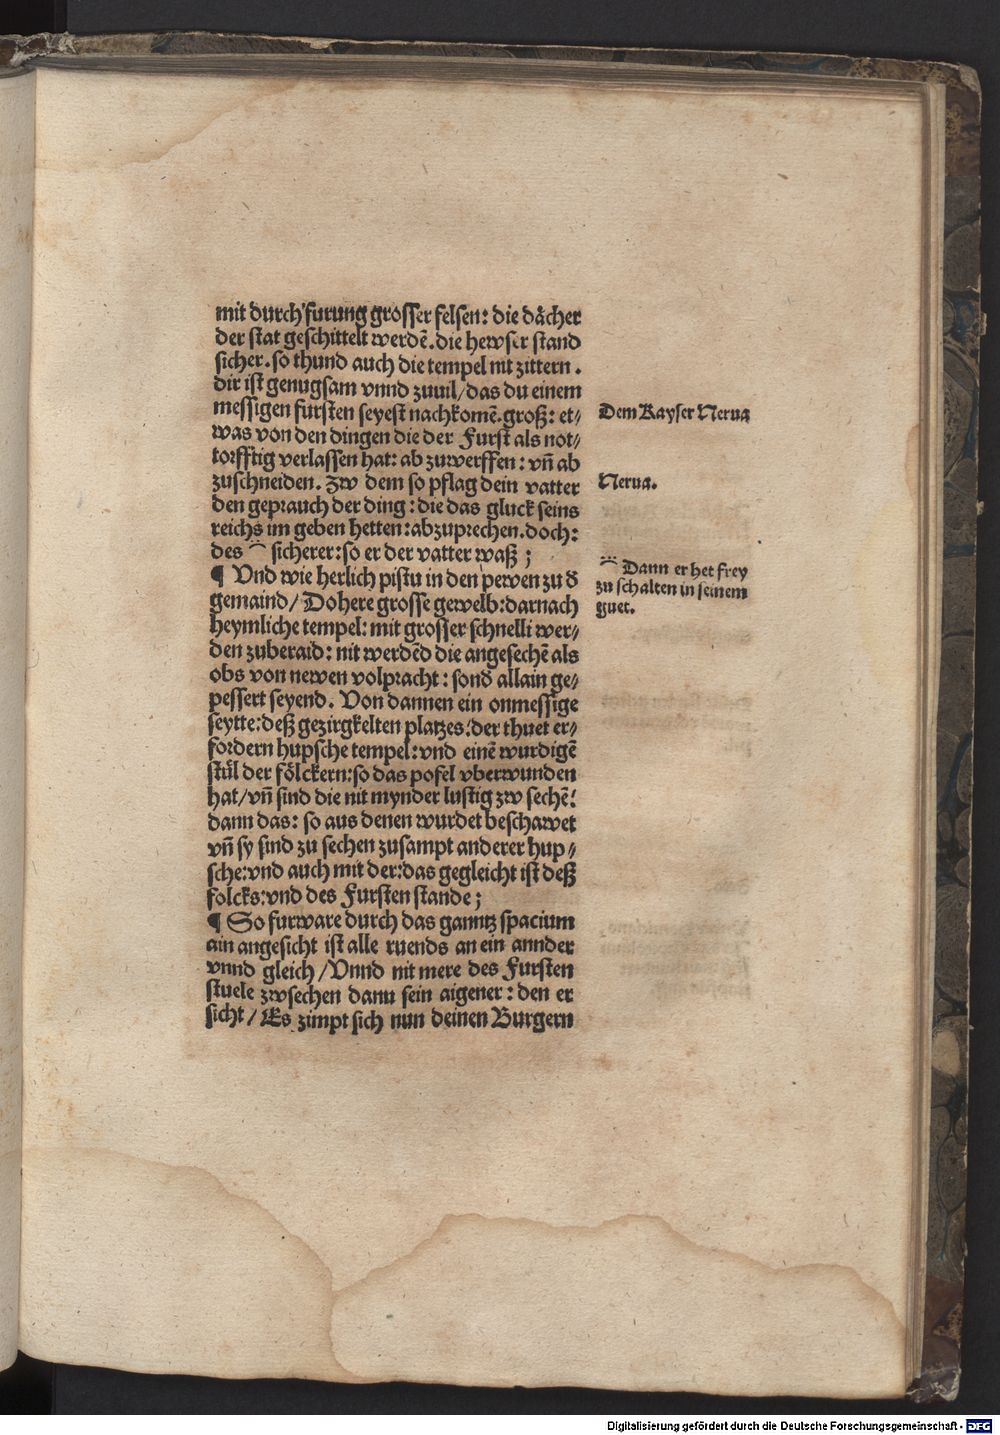 mit durch furung grosser felsen: die dächer
der stat geschittelt werdē. die hewser stand
sicher. so thund auch die tempel nit zittern.
dir ist genugsam vnnd zuuil/das du einem
messigen fursten seyest nachkomē. groß: et/
was von den dingen die der Furst als not/
torfftig verlassen hat: ab zuwerffen: vn̄ ab
zuschneiden. Zw dem so pflag dein vatter
den geprauch der ding: die das gluck seins
reichs im geben hetten: abzuprechen. doch:
des ⁀ sicherer: so er der vatter waß;
¶ Vnd wie herlich pistu in den pewen zu d
gemaind/ Dohere grosse gewelb: darnach
heymliche tempel: mit grosser schnelli wer/
den zuberaid: nit werdēd die angesechē als
obs von newen volpracht: sond allain ge/
pessert seyend. Von dannen ein onmessige
seytte: deß gezirgkelten platzes: der thuet er/
fordern hupsche tempel: vnd einē wurdigē
stůl der fölckern: so das pofel vberwunden
hat/ vn̄ sind die nit mynder lustig zw sechē:
dann das: so aus denen wurdet beschawet
vn̄ sy sind zu sechen zusampt anderer hup/
sche: vnd auch mit der: das gegleicht ist deß
folcks: vnd des Fursten stande;
¶ So furware durch das ganntz spacium
ain angesicht ist alle ruends an ein annder
vnnd gleich/ Vnnd nit mere des Fursten
stuele zwsechen dann sein aigener: den er
sicht/ Es zimpt sich nun deinen Burgern
Dem Kayser Nerua
Nerua.
⁀ Dann er het frey
zu schalten in seinem
guet.
Digitalisierung gefördert durch die Deutsche Forschungsgemeinschaft - DFG